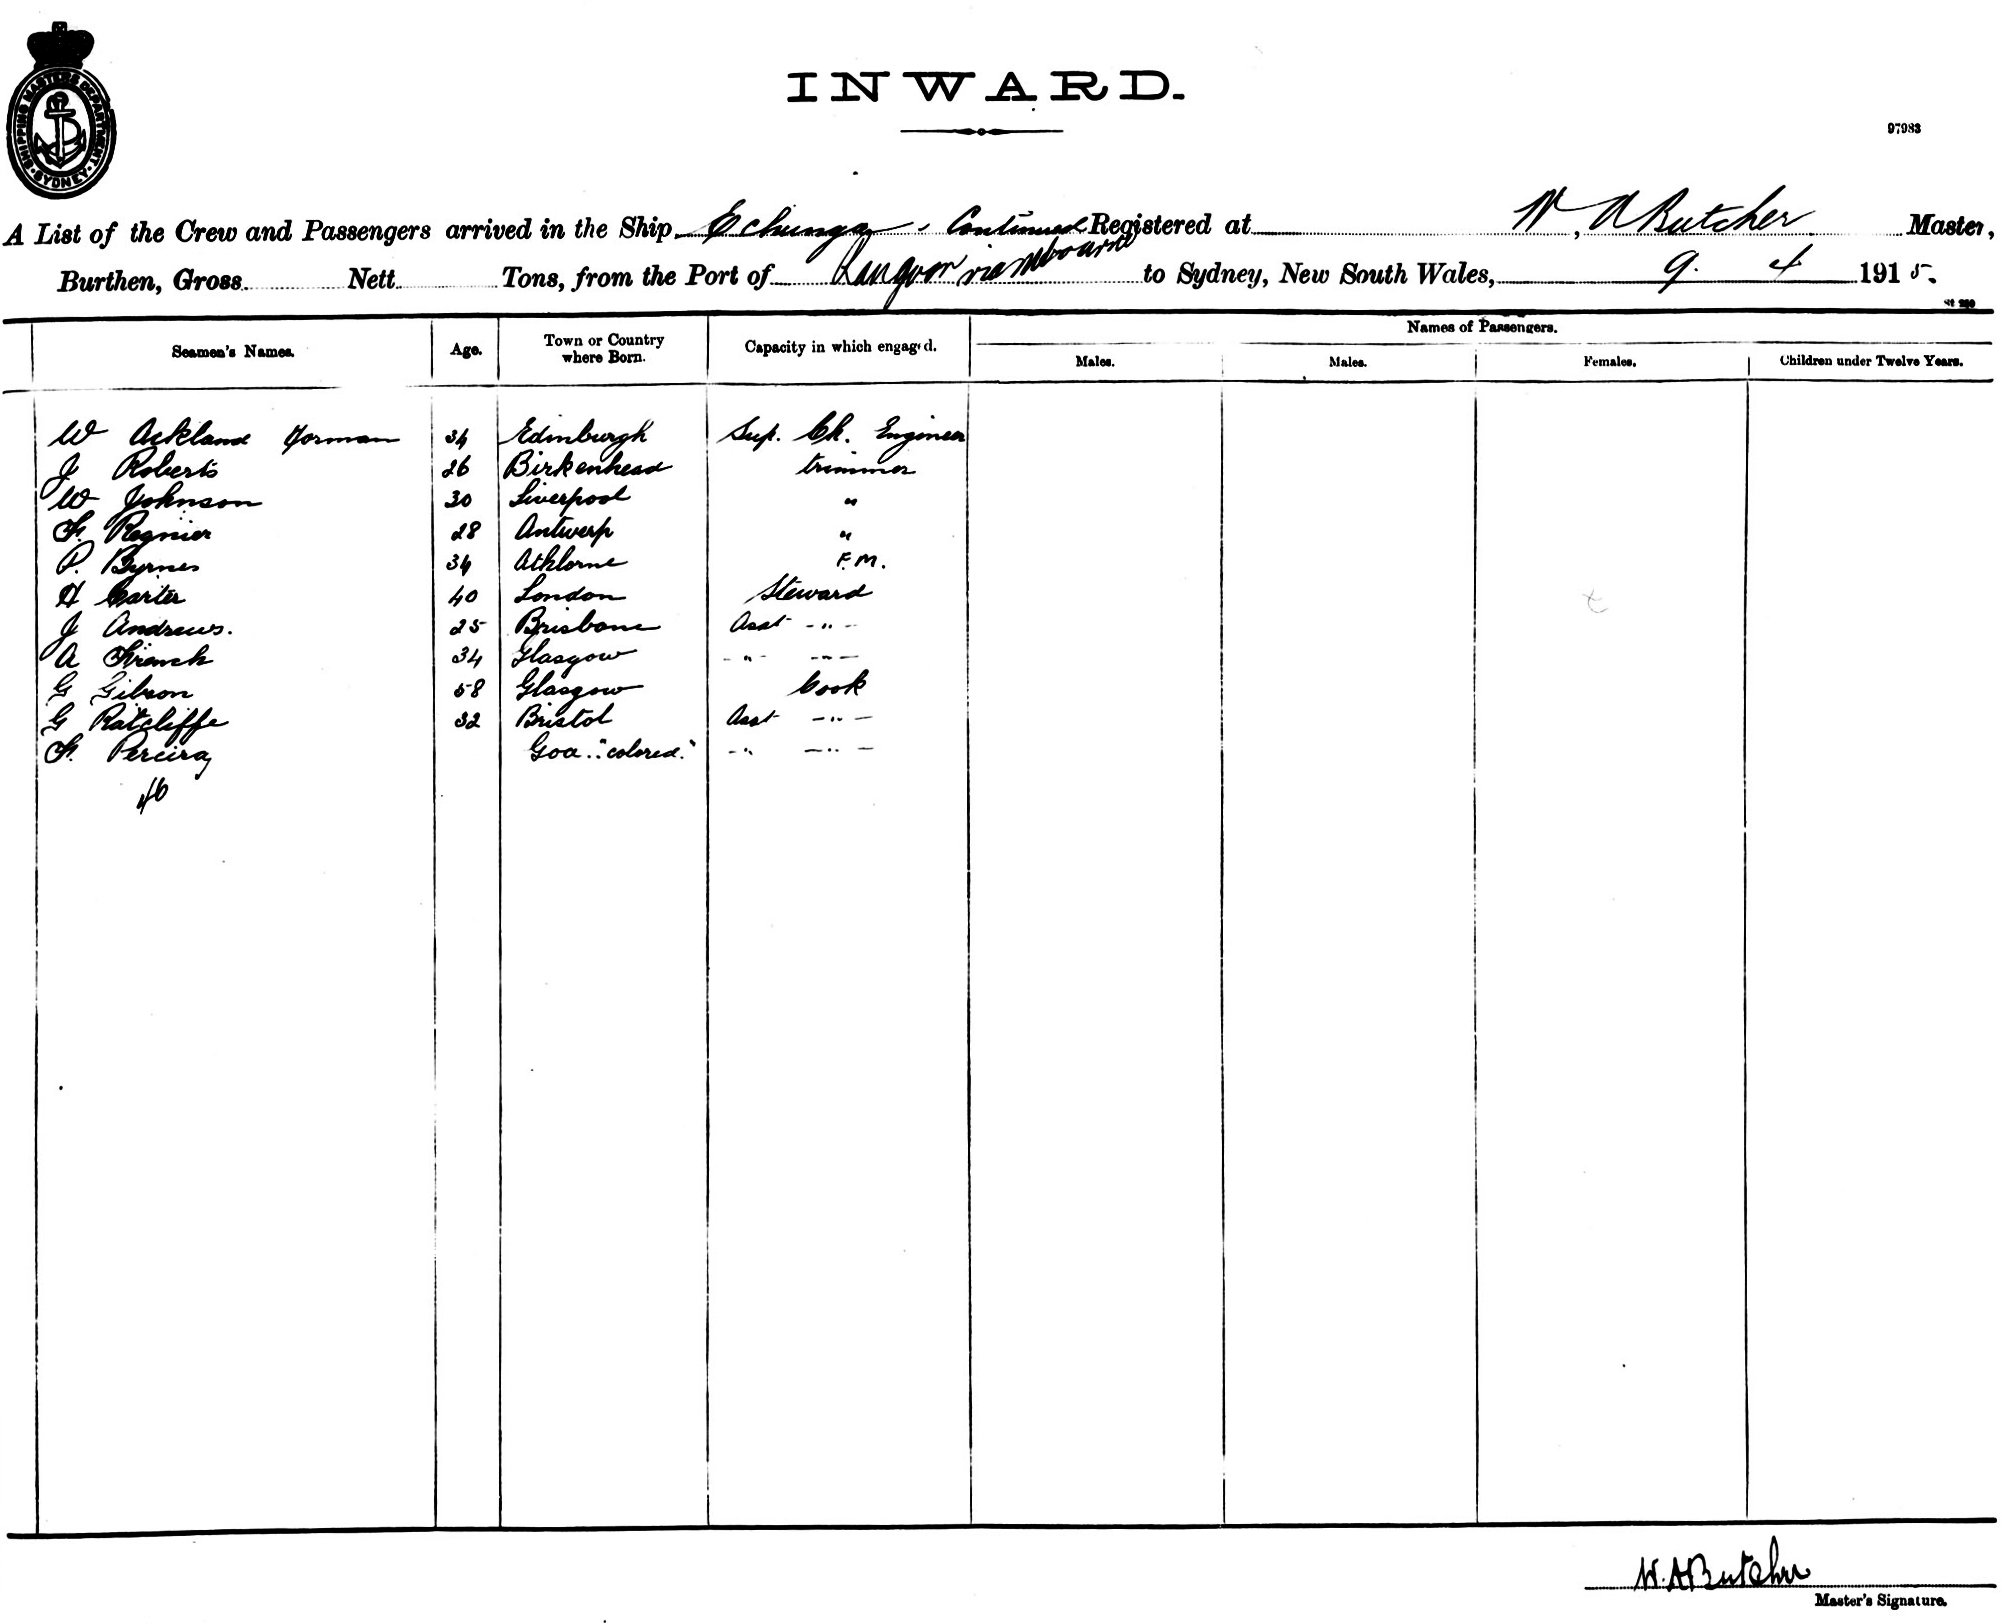 SHIPPING MASTERS DEPARTMENT · SYDNEY ·
INWARD.
97983
A List of the Crew and Passengers arrived in the Ship Echunga - Continued Registered at W. A Butcher Master,
Burthen, Gross Nett Tons, from the Port of Rangoon via Mbourne to Sydney, New South Wales, 9. 4 1915.
Names of Passengers.
Seamen's Names. Age. Town or Country where Born. Capacity in which engaged. Males. Males. Females. Children under Twelve Years.
W Ackland Gorman 34 Edinburgh Sup. Ch. Engineer
J Roberts 26 Birkenhead trimmer
W Johnson 30 Liverpool "
F. Regnier 28 Antwerp "
P. Byrnes 34 Athlorne F.M.
H Carter 40 London Steward
J Andrews. 25 Brisbane Asst - " -
A French 34 Glasgow - " - - " -
G Gibson 58 Glasgow Cook
G Ratcliffe 32 Bristol Asst - " -
F. Pereira Goa.. "colored." - " - " -
46
W. A Butcher
Master's Signature.